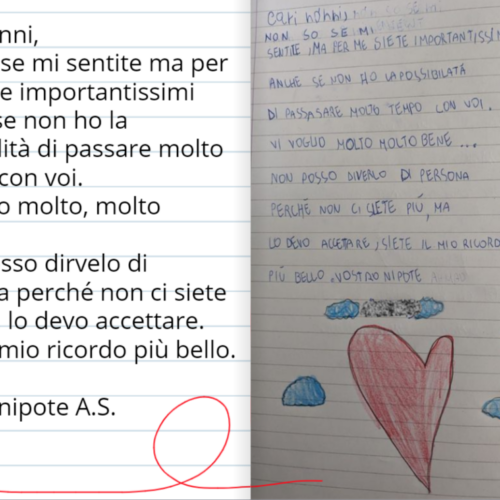 nni,
se mi sentite ma per
e importantissimi
se non ho la
lità di passare molto
con voi.
o molto, molto
sso dirvelo di
a perché non ci siete
lo devo accettare.
mio ricordo più bello.
nipote A.S.
Cari nonni,
NON SO SE MI
SENTITE, MA PER ME SIETE IMPORTANTISSI
ANCHE SE NON HO LA POSSIBILATÀ
DI PASSASARE MOLTO TEMPO CON VOI.
VI VOGLIO MOLTO MOLTO BENE...
NON POSSO DIVERLO DI PERSONA
PERCHÉ NON CI SIETE PIÚ, MA
LO DEVO ACCETTARE, SIETE IL MIO RICORD
PIÚ BELLO. VOSTRO NIPOTE